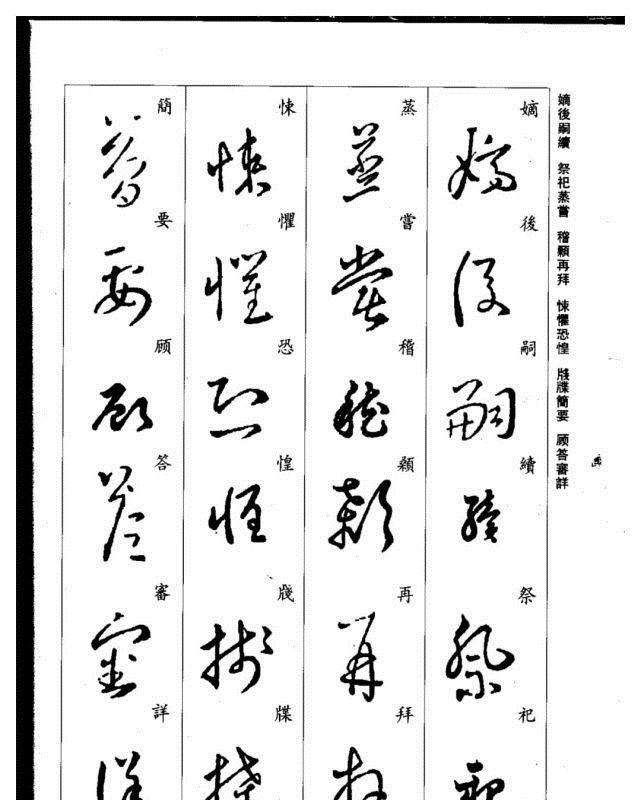 嫡後嗣續 祭祀蒸嘗 稽顙再拜 悚懼恐惶 牋牒簡要 顧答審詳
嫡後嗣續祭祀
蒸嘗稽顙再拜
悚懼恐惶牋牒
簡要顧答審詳